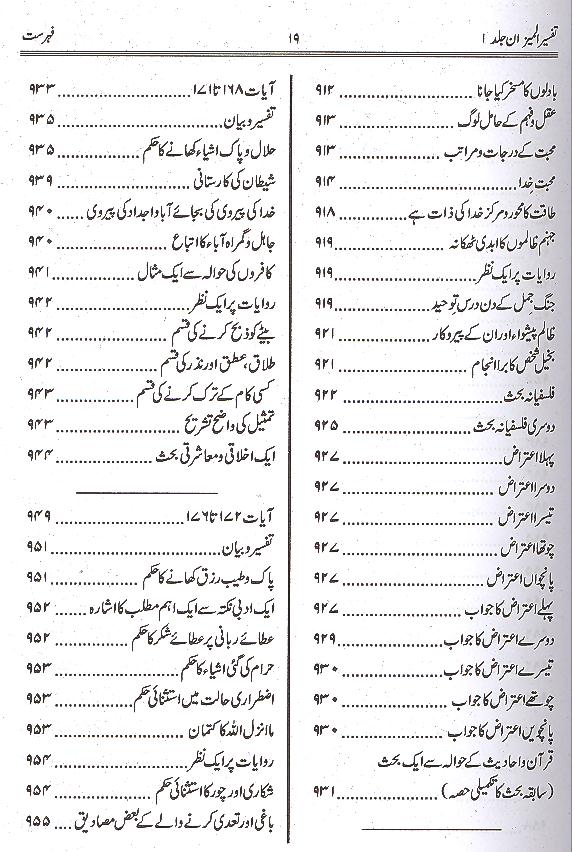 تفسیر المیزان جلد ۱
۱۹
فہرست
بادلوں کا مسخر کیا جانا ........................ ۹۱۲
عقل و فہم کے حامل لوگ ........................ ۹۱۳
محبت کے درجات و مراتب ........................ ۹۱۳
محبت خدا ........................ ۹۱۴
طاقت کا محور و مرکز خدا کی ذات ہے ........................ ۹۱۸
جہنم ظالموں کا ابدی ٹھکانہ ........................ ۹۱۹
روایات پر ایک نظر ........................ ۹۱۹
جنگ جمل کے دن درس توحید ........................ ۹۱۹
ظالم پیشواء اور ان کے پیروکار ........................ ۹۲۱
بخیل شخص کا برا انجام ........................ ۹۲۱
فلسفیانہ بحث ........................ ۹۲۲
دوسری فلسفیانہ بحث ........................ ۹۲۵
پہلا اعتراض ........................ ۹۲۷
دوسرا اعتراض ........................ ۹۲۷
تیسرا اعتراض ........................ ۹۲۷
چوتھا اعتراض ........................ ۹۲۷
پانچواں اعتراض ........................ ۹۲۷
پہلے اعتراض کا جواب ........................ ۹۲۷
دوسرے اعتراض کا جواب ........................ ۹۲۹
تیسرے اعتراض کا جواب ........................ ۹۳۰
چوتھے اعتراض کا جواب ........................ ۹۳۰
پانچویں اعتراض کا جواب ........................ ۹۳۰
قرآن و احادیث کے حوالہ سے ایک بحث
(سابقہ بحث کا تکمیلی حصہ) ........................ ۹۳۱
آیات ۱۶۸ تا ۱۷۱ ........................ ۹۳۳
تفسیر و بیان ........................ ۹۳۵
حلال و پاک اشیاء کھانے کا حکم ........................ ۹۳۵
شیطان کی کارستانی ........................ ۹۳۹
خدا کی پیروی کی بجائے آباء و اجداد کی پیروی ...... ۹۴۰
جاہل و گمراہ آباء کا اتباع ........................ ۹۴۰
کافروں کی حوالہ سے ایک مثال ........................ ۹۴۱
روایات پر ایک نظر ........................ ۹۴۲
بیٹے کو ذبح کرنے کی قسم ........................ ۹۴۲
طلاق، عتق اور نذر کی قسم ........................ ۹۴۲
کسی کام کے ترک کرنے کی قسم ........................ ۹۴۳
تمثیل کی واضح تشریح ........................ ۹۴۳
ایک اخلاقی و معاشرتی بحث ........................ ۹۴۴
آیات ۱۷۲ تا ۱۷۶ ........................ ۹۴۹
تفسیر و بیان ........................ ۹۵۱
پاک و طیب رزق کھانے کا حکم ........................ ۹۵۱
ایک ادبی نکتہ سے ایک اہم مطلب کا اشارہ ....... ۹۵۲
عطائے ربانی پر عطائے شکر کا حکم ........................ ۹۵۲
حرام کی گئی اشیاء کا حکم ........................ ۹۵۳
اضطراری حالت میں استثنائی حکم ........................ ۹۵۳
ما انزل اللہ کا کتمان ........................ ۹۵۳
روایات پر ایک نظر ........................ ۹۵۴
شکاری اور چور کا استثنائی حکم ........................ ۹۵۴
باغی اور تعدی کرنے والے کے بعض مصادیق .... ۹۵۵